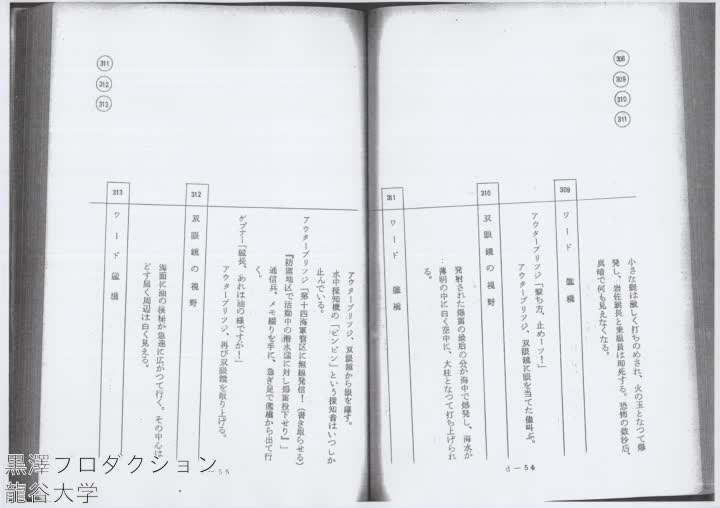 308
309
310
311
小さな艇は激しく打ちのめされ、火の玉となつて爆
発し、岩佐艇長と乗組員は即死する。恐怖の数秒后、
真暗で何も見えなくなる。
309 ワード 艦橋
アウターブリツジ「撃ち方、止めーツ！」
アウターブリツジ、双眼鏡に眼を当てた儘叫ぶ。
310 双眼鏡の視野
発射された爆雷の最后の分が海中で爆発し、海水が
薄明の中に白く空中に、大柱となつて打ち上げられ
る。
311 ワード 艦橋
d－54
311
312
313
アウターブリツジ、双眼鏡から眼を離す。
水中探知機の「ピンピン」という探知音はいつしか
止んでいる。
アウターブリツジ「第十四海軍管区に無線発信！（書き取らせる）
『防禦地区で活動中の潜水艦に対し爆雷投下せり』」
通信兵、メモ綴りを手に、急ぎ足で艦橋から出て行
く。
ゲプナー「艦長、あれは油の様ですが！」
アウターブリツジ、再び双眼鏡を取り上げる。
312 双眼鏡の視野
海面に油の痕跡が急速に広がつて行く。その中心は
どす黒く周辺は白く見える。
313 ワード 艦橋
－55
黒澤プロダクション
龍谷大学